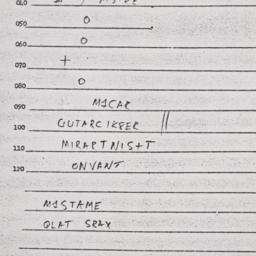 040
050 O
060 O
070 +
080 O
090 MICAR
100 GUTARCIKPER //
110 MIRARTNIS+T
120 ONVANT
MISTAME
QLAT SRAX